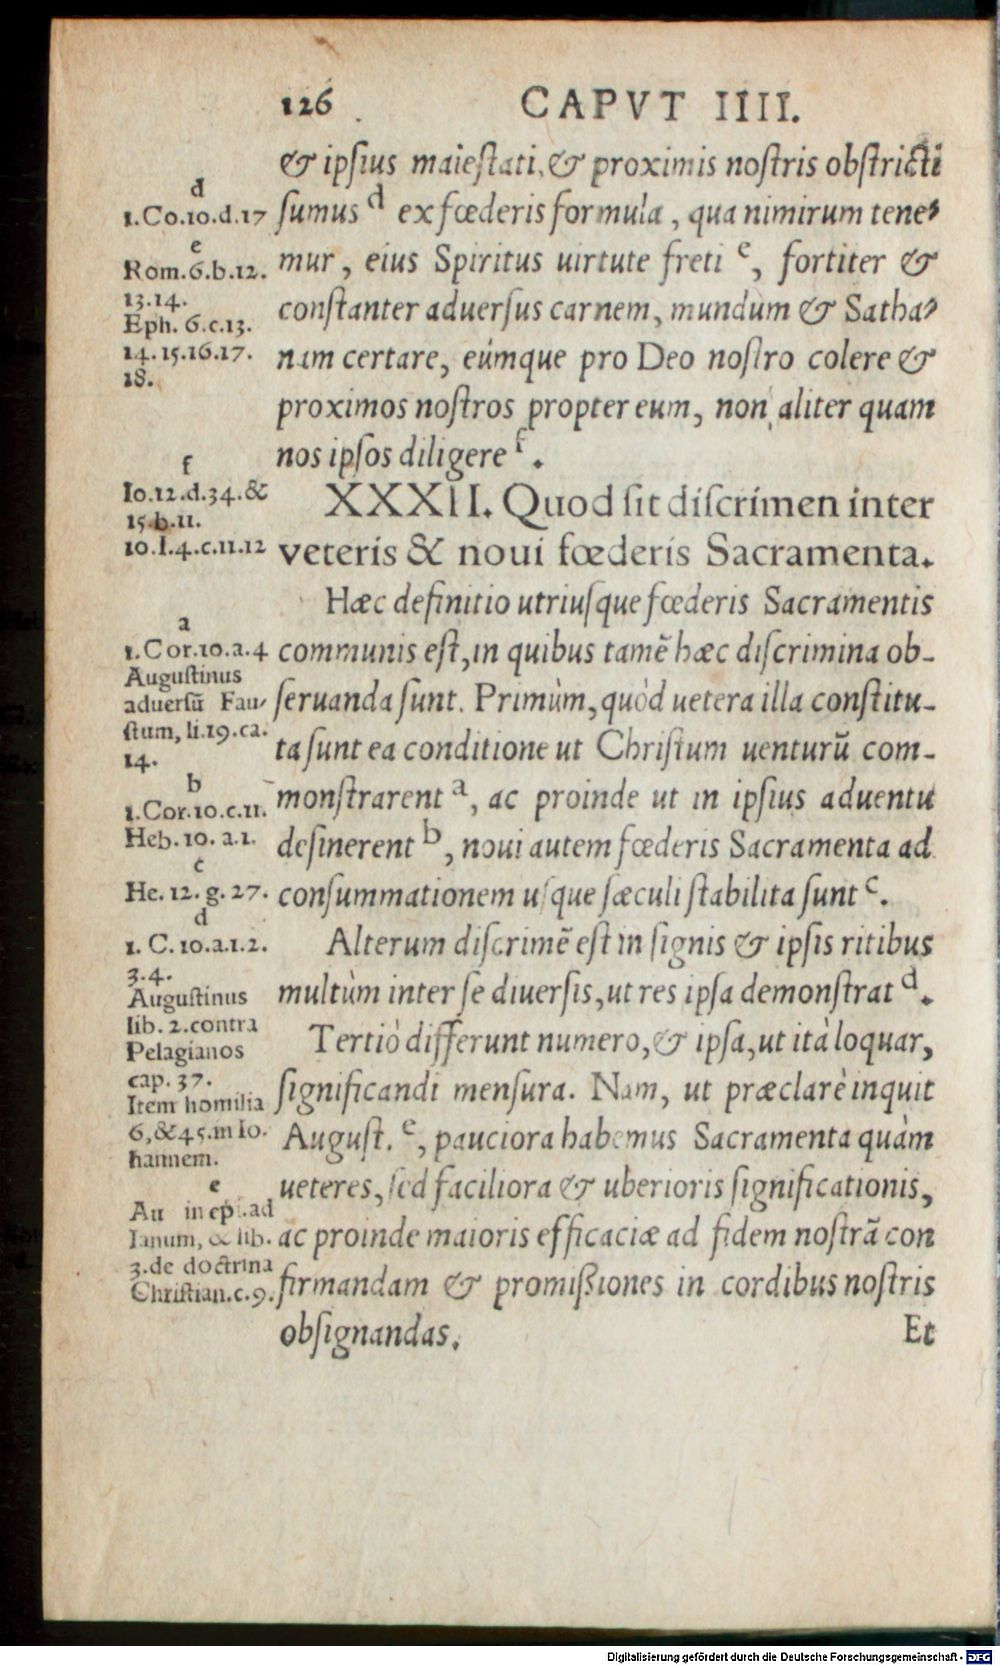 126 CAPVT IIII.
& ipſius maieſtati, & proximis noſtris obſtricti
ſumus d ex fœderis formula, qua nimirum tene-
mur, eius Spiritus uirtute freti e, fortiter &
conſtanter aduerſus carnem, mundum & Satha-
nam certare, eúmque pro Deo noſtro colere &
proximos noſtros propter eum, non aliter quam
nos ipſos diligere f.
XXXII. Quod ſit diſcrimen inter
veteris & noui fœderis Sacramenta.
Hæc definitio utriuſque fœderis Sacramentis
communis eſt, in quibus tamē hæc diſcrimina ob-
ſeruanda ſunt. Primùm, quòd uetera illa conſtitu-
ta ſunt ea conditione ut Chriſtum uenturũ com-
monſtrarent a, ac proinde ut in ipſius aduentu
deſinerent b, noui autem fœderis Sacramenta ad
conſummationem uſque ſæculi ſtabilita ſunt c.
Alterum diſcrimē eſt in ſignis & ipſis ritibus
multùm inter ſe diuerſis, ut res ipſa demonſtrat d.
Tertiò differunt numero, & ipſa, ut ità loquar,
ſignificandi menſura. Nam, ut præclarè inquit
Auguſt. e, pauciora habemus Sacramenta quàm
ueteres, ſed faciliora & uberioris ſignificationis,
ac proinde maioris efficaciæ ad fidem noſtrã con
firmandam & promißiones in cordibus noſtris
obſignandas.
Et
d
1.Co.10.d.17
e
Rom.6.b.12.
13.14.
Eph. 6.c.13.
14.15.16.17.
18.
f
Io.12.d.34.&
15.b.11.
10.I.4.c.11.12
a
1.Cor.10.a.4
Auguſtinus
aduerſũ Fau-
ſtum, li.19.ca.
14.
b
1.Cor.10.c.11.
Heb.10. a.1.
c
He. 12. g. 27.
d
1. C. 10.a.1.2.
3.4.
Auguſtinus
lib. 2.contra
Pelagianos
cap. 37.
Item homilia
6,&45.in Io.
hannem.
e
Au in epi.ad
Ianum, & lib.
3.de doctrina
Chriſtian.c.9.
Digitalisierung gefördert durch die Deutsche Forschungsgemeinschaft - DFG